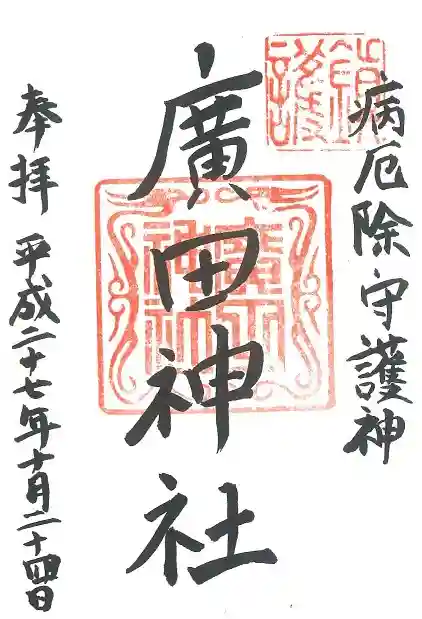 病厄除守護神
鎮護
廣田神社
廣田神社
奉拝 平成二十七年十月二十四日